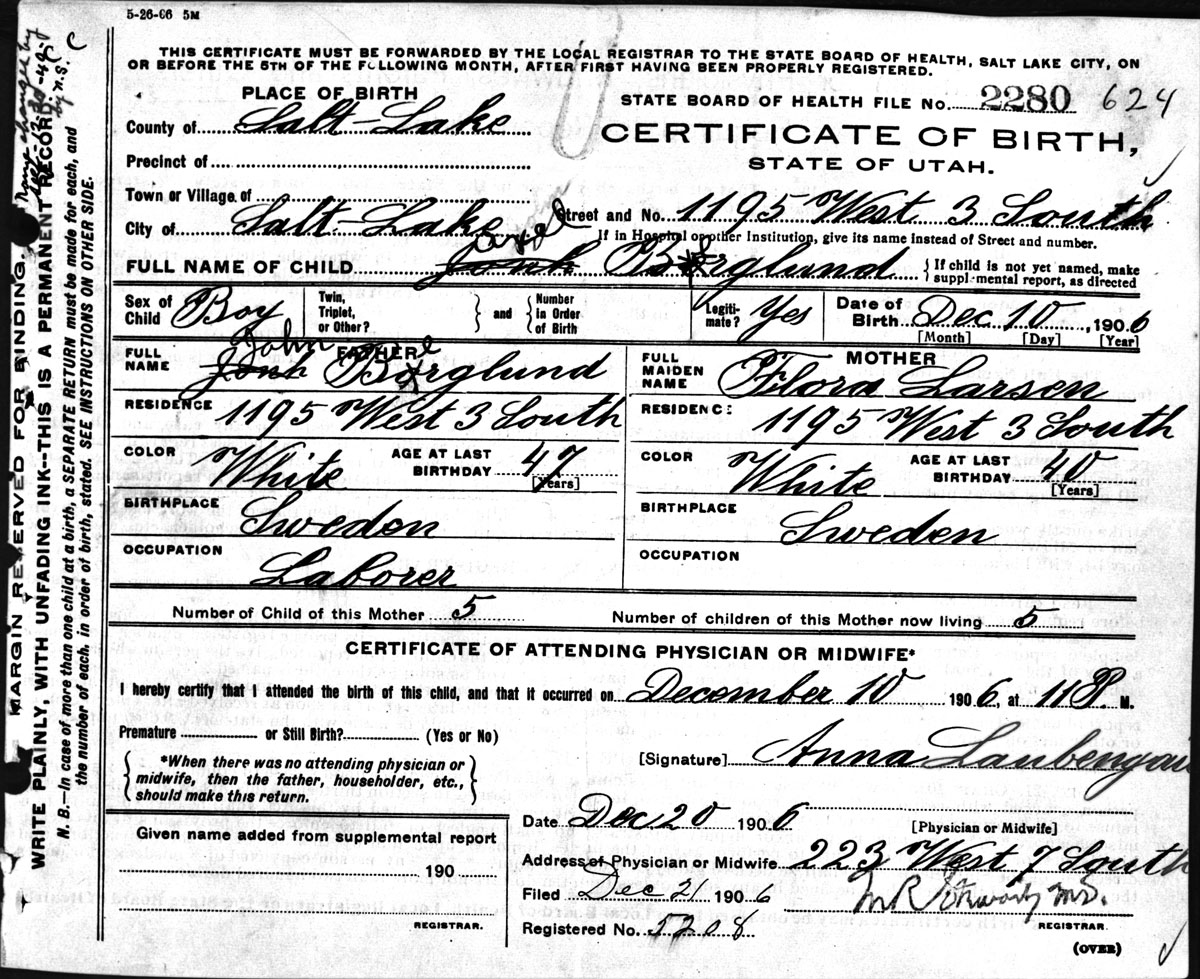 5-26-06 5M
THIS CERTIFICATE MUST BE FORWARDED BY THE LOCAL REGISTRAR TO THE STATE BOARD OF HEALTH, SALT LAKE CITY, ON
OR BEFORE THE 5TH OF THE FOLLOWING MONTH, AFTER FIRST HAVING BEEN PROPERLY REGISTERED.
PLACE OF BIRTH
STATE BOARD OF HEALTH FILE No. 2280 624
County of Salt-Lake
CERTIFICATE OF BIRTH,
STATE OF UTAH.
Precinct of
Town or Village of
Street and No. 1195 West 3 South
City of Salt-Lake
If in Hospital or other Institution, give its name instead of Street and number.
FULL NAME OF CHILD Borglund
{If child is not yet named, make
supplemental report, as directed
Sex of Child Boy
Twin, Triplet, or Other? } and { Number in Order of Birth
Legitimate? Yes
Date of Birth Dec 10, 1906
[Month] [Day] [Year]
FATHER
FULL NAME John Borglund
RESIDENCE 1195 West 3 South
COLOR White AGE AT LAST BIRTHDAY 47
[Years]
BIRTHPLACE Sweden
OCCUPATION Laborer
MOTHER
FULL MAIDEN NAME Flora Larsen
RESIDENCE 1195 West 3 South
COLOR White AGE AT LAST BIRTHDAY 40
[Years]
BIRTHPLACE Sweden
OCCUPATION
Number of Child of this Mother 5 Number of children of this Mother now living 5
CERTIFICATE OF ATTENDING PHYSICIAN OR MIDWIFE*
I hereby certify that I attended the birth of this child, and that it occurred on December 10 1906, at 11 P. M.
Premature or Still Birth? (Yes or No)
{*When there was no attending physician or
midwife, then the father, householder, etc.,
should make this return.}
[Signature] Anna
Given name added from supplemental report
190
REGISTRAR.
Date Dec 20 1906
[Physician or Midwife]
Address of Physician or Midwife 223 West 7 South
Filed Dec 21 1906
Registered No. 5208
REGISTRAR.
(OVER)
MARGIN RESERVED FOR BINDING.
WRITE PLAINLY, WITH UNFADING INK--THIS IS A PERMANENT RECORD.
N. B.—In case of more than one child at a birth, a SEPARATE RETURN must be made for each, and
the number of each, in order of birth, stated. SEE INSTRUCTIONS ON OTHER SIDE.